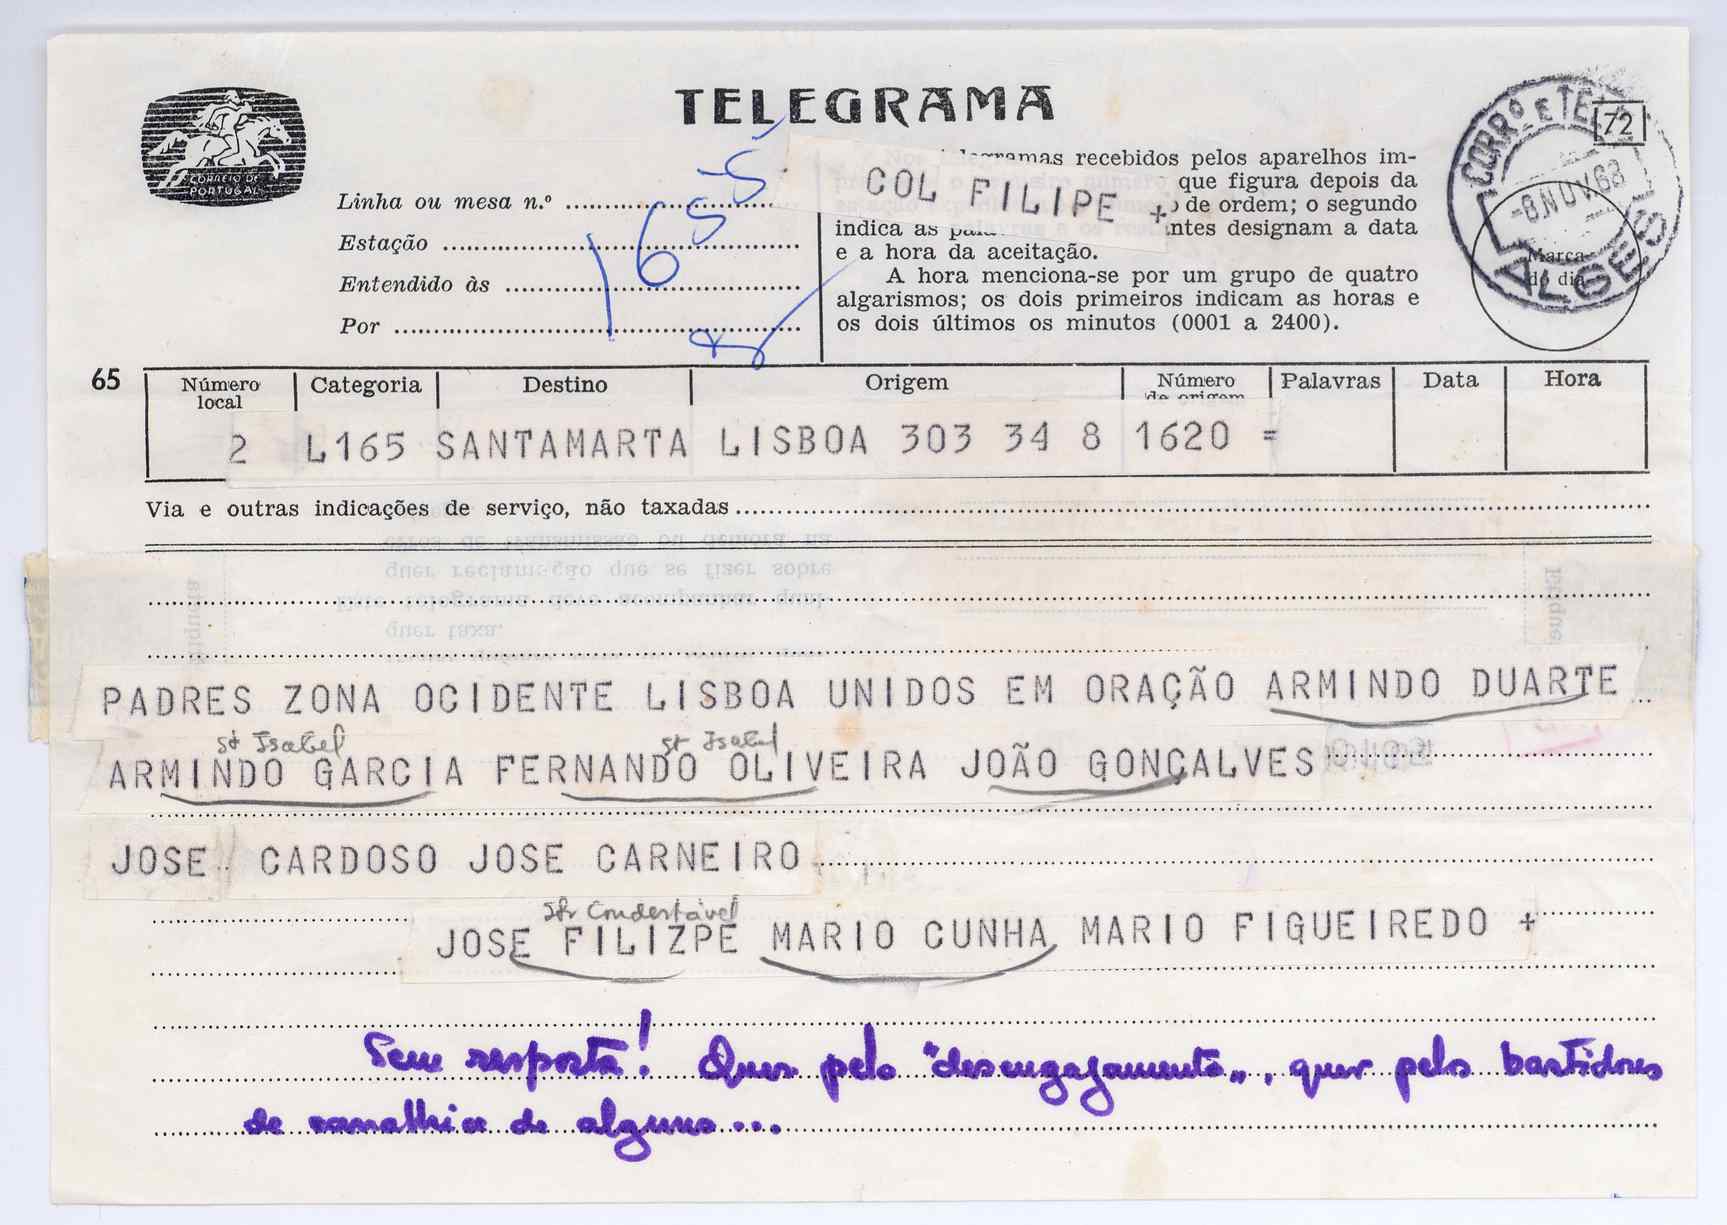 TELEGRAMA
CORREIO DE
PORTUGAL
CORRº E TE
72
-8.NOV.68
ALGES
Marca
do dia
COL FILIPE +
telegramas recebidos pelos aparelhos im-
que figura depois da
de ordem; o segundo
indica as
ntes designam a data
e a hora da aceitação.
A hora menciona-se por um grupo de quatro
algarismos; os dois primeiros indicam as horas e
os dois últimos os minutos (0001 a 2400).
Linha ou mesa n.º
Estação
Entendido às
Por
1655
65
Número local Categoria Destino Origem Número de origem Palavras Data Hora
2 L165 SANTAMARTA LISBOA 303 34 8 1620 =
Via e outras indicações de serviço, não taxadas
PADRES ZONA OCIDENTE LISBOA UNIDOS EM ORAÇÃO ARMINDO DUARTE
St Isabel St Isabel
ARMINDO GARCIA FERNANDO OLIVEIRA JOÃO GONÇALVES
JOSE CARDOSO JOSE CARNEIRO
Condestável
JOSE FILIZPE MARIO CUNHA MARIO FIGUEIREDO +
Sem resposta! Quer pelo "desengajamento", quer pelos bastidores
de canalhice de alguns...